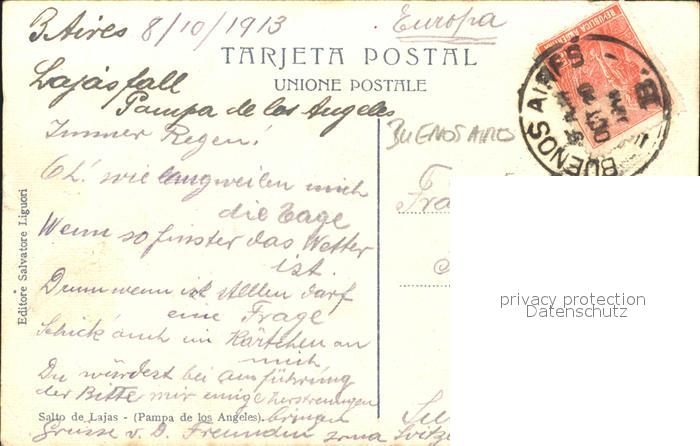 BAires 8/10/1913
Europa
TARJETA POSTAL
UNIONE POSTALE
Lajasfall
Pampa de los Angeles
REPUBLICA ARGENTINA
BUENOS AIRES
BUENOS AIRES
OCT
Immer Regen!
Oh! wie langweilen mich
die Tage
Wenn so finster das Wetter
ist.
Drum wenn ich stellen darf
eine Frage
Schick auch ein Kärtchen an
mich
Du würdest bei ausführung
der Bitte mir einige Zerstreuungen
bringen
Grüsse v. D. Freundin
Editore Salvatore Liguori
Salto de Lajas - (Pampa de los Angeles).
Fra
privacy protection
Datenschutz